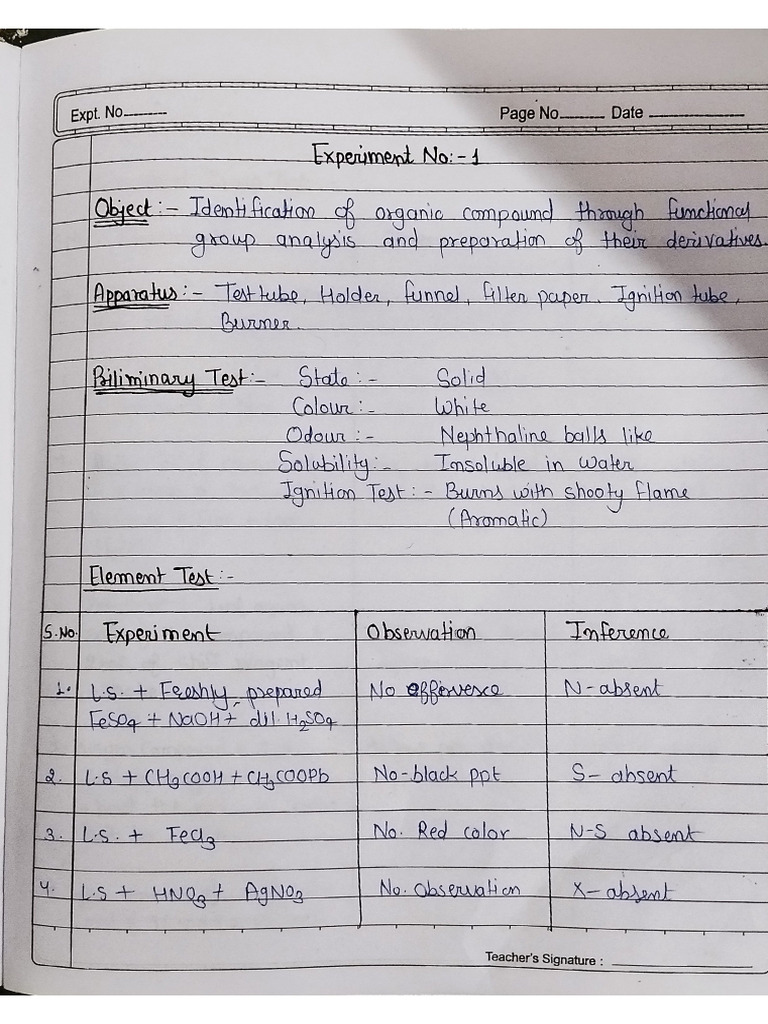 Expt. No.
Page No. Date
Experiment No:- 1
Object:- Identification of organic compound through functional
group analysis and preparation of their derivatives.
Apparatus:- Test tube, Holder, funnel, filter paper. Ignition tube,
Burner.
Biliminary Test:- State:- Solid
Colour:- White
Odour:- Nephthaline balls like
Solubility:- Insoluble in water
Ignition Test:- Burns with shooty flame
(Aromatic)
Element Test:-
S.No. Experiment Observation Inference
1. L.S. + Freshly prepared No effervesce N-absent
FeSO4 + NaOH + dil. H2SO4
2. L.S + CH3COOH + CH3COOPb No-black ppt S- absent
3. L.S. + FeCl3 No. Red color N-S absent
4. L.S + HNO3 + AgNO3 No. Observation X-absent
Teacher's Signature :